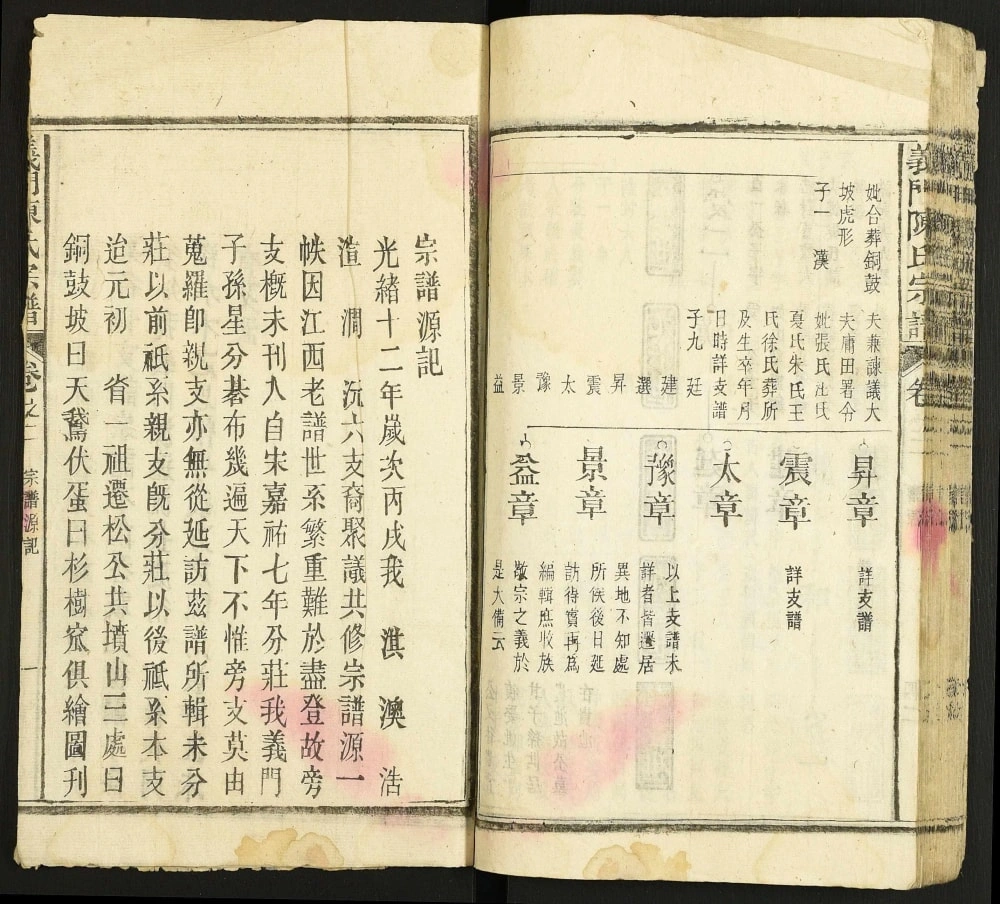 義門陳氏宗譜
卷
妣合葬銅鼓
坡虎形
子一 漢
夫兼諫議大
夫庸田署令
妣張氏杜氏
夏氏朱氏王
氏徐氏葬所
及生卒年月
日時詳支譜
子九
廷
建
選
昇
震
太
豫
景
益
昇章
詳支譜
震章
詳支譜
太章
豫章
景章
益章
以上支譜未
詳者皆遷居
異地不知處
所俟後日延
訪待實再為
編輯庶收族
敬宗之義於
是大備云
宗譜源記
光緒十二年歲次丙戌我 淇 澳 浩
渲 澗 沉六支裔聚議共修宗譜源一
帙因江西老譜世系繁重難於盡登故旁
支概未刊入自宋嘉祐七年分莊我義門
子孫星分碁布幾遍天下不惟旁支莫由
蒐羅卽親支亦無從延訪茲譜所輯未分
莊以前祇系親支旣分莊以後祇系本支
迨元初 省一祖遷松公共墳山三處曰
銅鼓坡曰天鵞伏蛋曰杉樹窊俱繪圖刊
義門陳氏宗譜
卷之二
宗譜源記
一